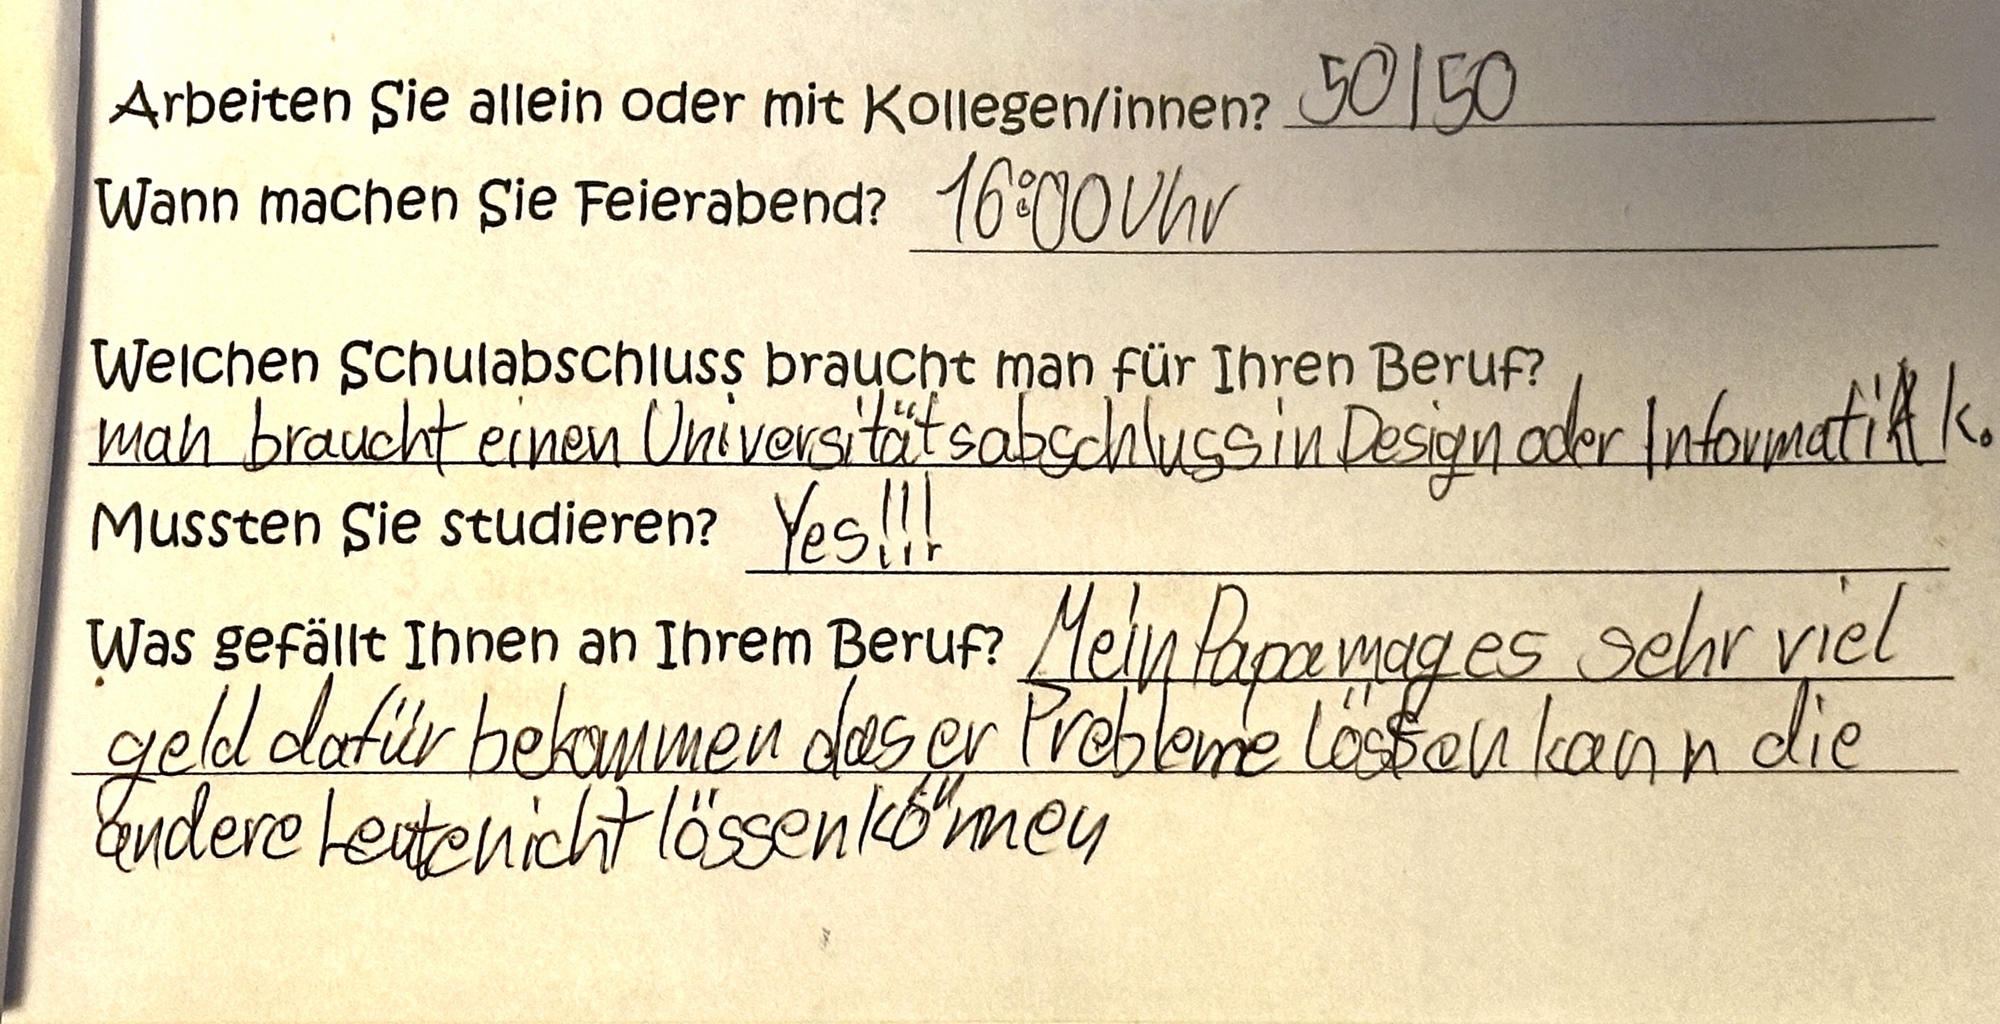 Arbeiten Sie allein oder mit Kollegen/innen? 50/50
Wann machen Sie Feierabend? 16:00 Uhr
Welchen Schulabschluss braucht man für Ihren Beruf?
man braucht einen Universitätsabschluss in Design oder Informatik k.
Mussten Sie studieren? Yes!!!
Was gefällt Ihnen an Ihrem Beruf? Mein Papa mag es sehr viel
geld dafür bekommen das er Probleme lössen kann die
andere Leute nicht lössen können